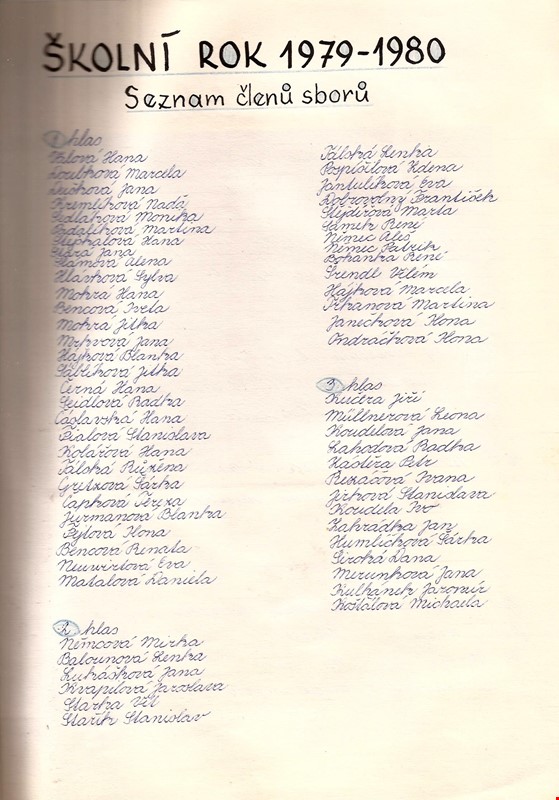 ŠKOLNÍ ROK 1979-1980
Seznam členů sborů
1 hlas
Hana
Doubková Marcela
Jana
Kremlíková Naďa
Sedláková Monika
Martina
Štephalová Hana
Jana
Šrámová Alena
Hlavková Sylva
Mokrá Hana
Bencová Iveta
Mokrá Jitka
Mrkvová Jana
Hájková Blanka
Jitka
Černá Hana
Seidlová Radka
Čáslavská Hana
Fialová Stanislava
Kolářová Hana
Tálská Růžena
Šárka
Čapková Tereza
Jurmanová Blanka
Pýlová Ilona
Bencová Renata
Neuwirtová Eva
Matalová Daniela
2 hlas
Němcová Mirka
Balounová Lenka
Lukášková Jana
Kvapilová Jaroslava
Starka Vít
Stařík Stanislav
Tálská Lenka
Pospíšilová Zdena
Jantulíková Eva
Dobrovolný František
Stejdířová Marta
Samek René
Němec Aleš
Němec Patrik
Bohanka René
Šrundl Vilém
Hájková Marcela
Martina
Janečková Ilona
Ondráčková Ilona
3 hlas
Kučera Jiří
Müllnerová Leona
Koudelová Jana
Zahodová Radka
Kaštěra Petr
Řezáčová Ivana
Jirková Stanislava
Koudela Ivo
Zahrádka Jan
Humlíčková Šárka
Široká Dana
Merunková Jana
Kulhánek Jaromír
Košťálová Michaela